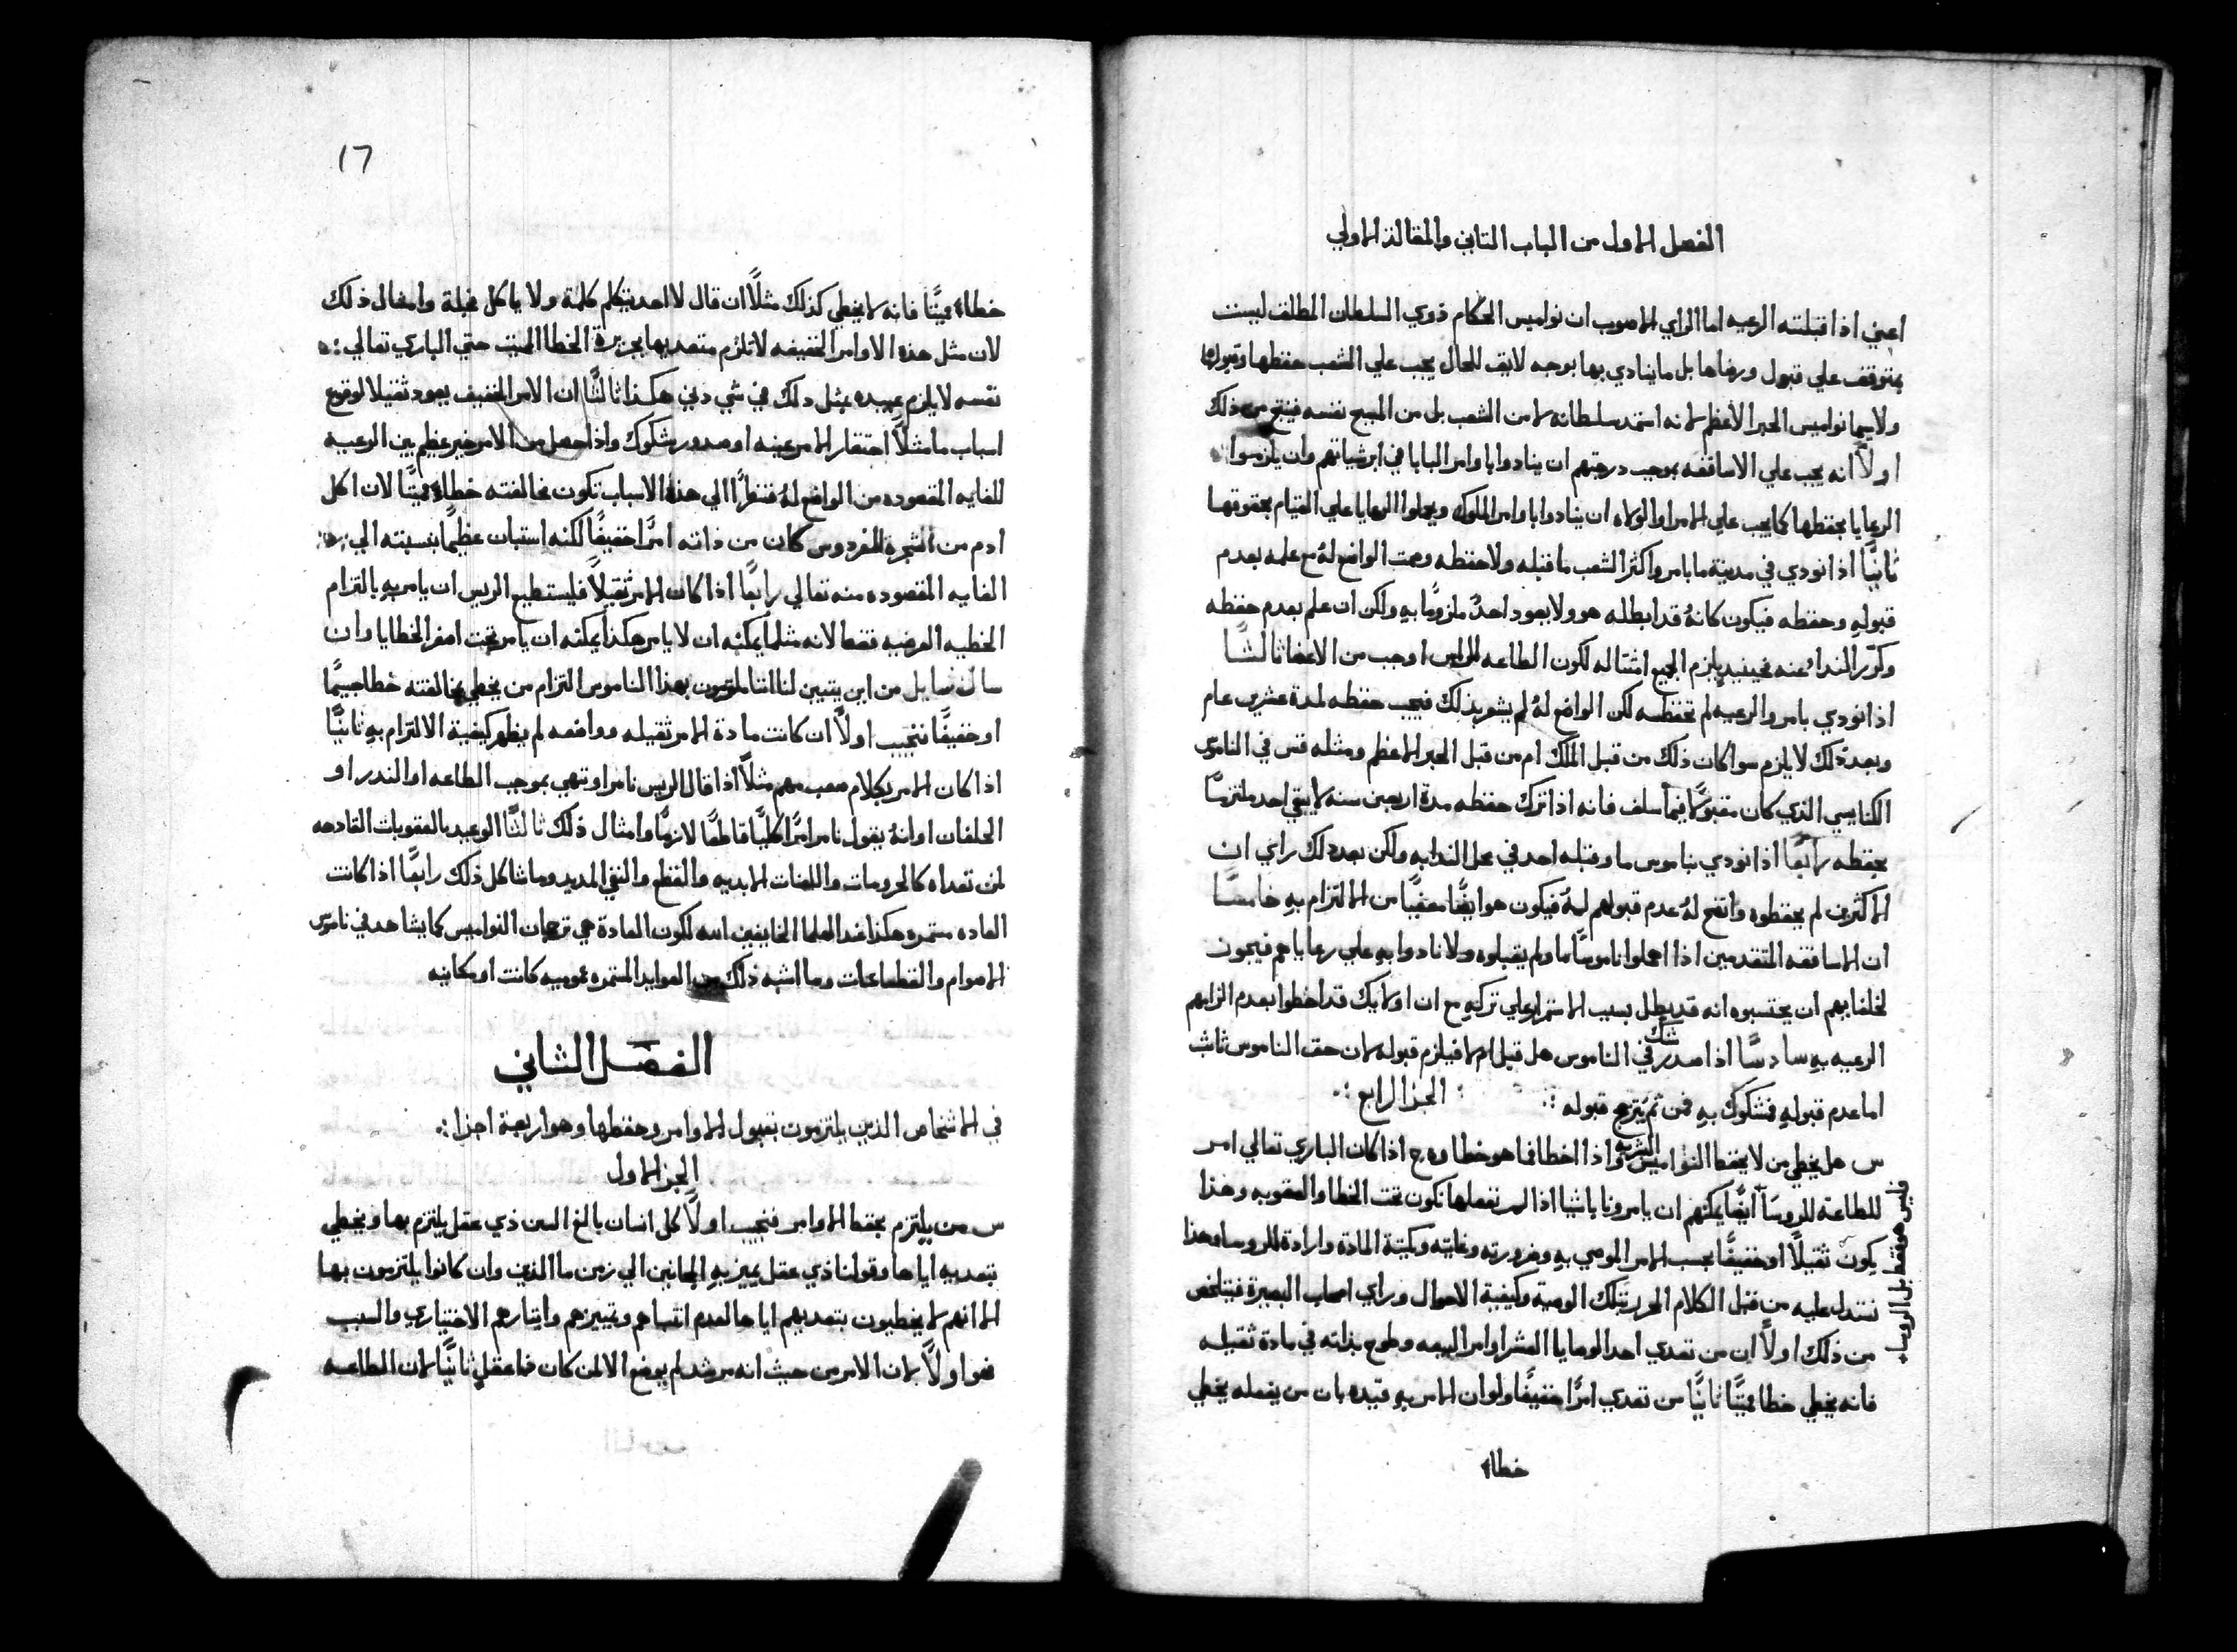 الفصل الاول من الباب التاني والمقالة الاولي
اعني اذا قبلته الرعيه اما الراي الاصوب ان نواميس الحكام ذوي السلطان المطلق ليست
بمتوقف علي قبول ورضاها بل ما ينادي بها بوجه لايق للحال يجب علي الشعب حفظها وقبولها
ولا سيما نواميس الحبر الأعظم لانه استمد سلطانه لا من الشعب بل من المسيح نفسه فينتج من ذلك
اولاً انه يجب علي الاساقفه بموجب درجتهم ان ينادوا باوامر البابا في ابرشياتهم وان يلزموا
الرعايا بحفظها كما يجب علي الامرا والولاه ان ينادوا باوامر الملوك ويحملوا الرعايا علي القيام بحقوقها
ثانيًا اذا نودي في مدينة ما بامر واكثر الشعب ما قبله ولا حفظه وصمت الواضع لهُ مع علمه بعدم
قبولهِ وحفظه فيكون كانهُ قد ابطله هو ولا يعود احدٌ ملزومًا بهِ ولكن ان علم بعدم حفظه
وكرّر النداءُ عنه فحينيدٍ يلزم الجميع امتثاله لكون الطاعه للرايس اوجب من الاغضا ثالثًا
اذا نودي بامر والرعيه لم تحفظه لكن الواضع لهُ لم يشعر بذلك فيجب حفظه لمدة عشرين عام
وبعد ذلك لا يلزم سوا كان ذلك من قبل الملك ام من قبل الحبر الاعظم ومثله قس في الناموس
الكنايسي الذي كان مقبولاً فيما سلف فانه اذا ترك حفظه مدة اربعين سنه لا يبقي احد ملتزمًا
بحفظه رابعًا اذا نودي بناموس ما وقبله احد في محل الندا به ولكن بعد ذلك راي ان
الاكثرين لم يحفظوه واتضح لهُ عدم قبولهم لهُ فيكون هو ايضًا معفيًا من الالتزام بهِ خامسًا
ان الاساقفه المتقدمين اذا اهملوا ناموسًا ما ولم يقبلوه ولا نادوا بهِ علي رعاياهم فيجون
لخلفايهم ان يحتسبوه انه قد بطل بسبب الاستمرار علي تركهِ مع ان اوليك قد اخطوا بعدم الزامهم
الرعيه بهِ سادسًا اذا صدر شك في الناموس هل قبل ام لا فيلزم قبوله لان حق الناموس ثابت
اما عدم قبولهِ فمشكوك بهِ فمن ثم يترجح قبوله : الجزا الرابع :.
س هل يخطي من لا يحفظ النواميس البشريه واذا اخطا فما هو خطاوه ج اذا كان الباري تعالي امر
للطاعة للروسآ ايضًا يمكنهم ان يامرونا باشيا اذا لم نفعلها نكون تحت الخطا والعقوبه وهذا
فليس هو فقط بل الروسا
يكون ثقيلاً او خفيفًا بحسب الامر الموصي بهِ وضرورته وغايته وكمية المادة وارادة للروسا وهذا
نستدل عليه من قبل الكلام المحرر بتلك الوصية وكيفية الاحوال وراي اصحاب البصيرة فيتلخص
من ذلك اولاً ان من تعدي احد الوصايا العشر او امر البيعه وطوح بذاته في مادة ثقيله
فانه يخطي خطا مميتًا ثانيًا من تعدي امرًا خفيفًا ولو ان الامر بهِ قيده بان من يفعله يخطي
خطاء
١٦
خطاء مميتًا فانه لا يخطي كذلك مثلاً ان قال لا احد يتكلم كلمة ولا ياكل فجلة وامثال ذلك
لان مثل هذه الاوامر الخفيفه لا تلزم متعديها بجزيرة الخطا المميت حتي الباري تعالي
نفسه لا يلزم عبيده بمثل ذلك في شي دني هكذا ثالثًا ان الامر الخفيف يعود ثقيلا لوقوع
اسباب ما مثلاً احتقار الامر عينه او صدور شكوك واذا حصل من الامر خير عظيم بين الرعيه
للغايه المقصوده من الواضع لهُ فنظرًا الي هذه الاسباب تكون مخالفته خطاء مميتًا لان اكل
ادم من الشجرة للفردوس كان من ذاته امرًا خفيفًا لكنه استبان عظيمًا بنسبته الي
الغايه المقصوده منه تعالي رابعًا اذا كان الامر ثقيلاً فليستطيع الريس ان يامر بهِ بالتزام
الخطيه العرضيه فقط لانه مثلما يمكنه ان لا يامر هكذا يمكنه ان يامر تحت اصغر الخطايا وان
سال سايل من اين يتبين لنا اننا ملتزمون بهذا الناموس التزام من يخطي بمخالفته خطا جسيمًا
او خفيفًا فنجيب اولاً ان كانت مادة الامر ثقيله وواضعه لم يظهر كيفية الالتزام بهِ ثانيًا
اذا كان الامر بكلام صعب مهم مثلاً اذا قال الريس نامر او ننهي بموجب الطاعه او الندر او
الحلفان او انهُ يقول نامر امرًا كليًا قاطعًا لازمًا وامثال ذلك ثالثًا الوعيد بالعقوبات القادحه
لمن تعداه كالحرومات واللعنات الابديه والقطع والنفي المديد وما شاكل ذلك رابعًا اذا كانت
العاده مستمره هكذا عند العلما الخايفين الله لكون العادة هي ترجمان النواميس كما يشاهد في ناموس
الاصوام والقطاعات وما اشبه ذلك من العوايد المستمره عموميه كانت او مكانيه
الفصل الثاني
في الاشخاص الذين يلتزمون بقبول الاوامر وحفظها وهو اربعة اجزا :.
الجزا الاول
س من يلتزم بحفظ الاوامر فنجيب اولاً كل انسان بالغ السن ذي عقل يلتزم بها ويخطي
بتعديهِ اياها وقولنا ذي عقل يميز بهِ المجانين الي زمن ما الذين وان كانوا يلتزمون بها
الا انهم لا يخطيون بتعديهم اياها لعدم انتباههم وتمييزهم وايثارهم الاختياري والسبب
هو اولاً لان الامر من حيث انه مرشد لم يوضع الا لمن كان ذا عقل ثانيًا لان الطاعه